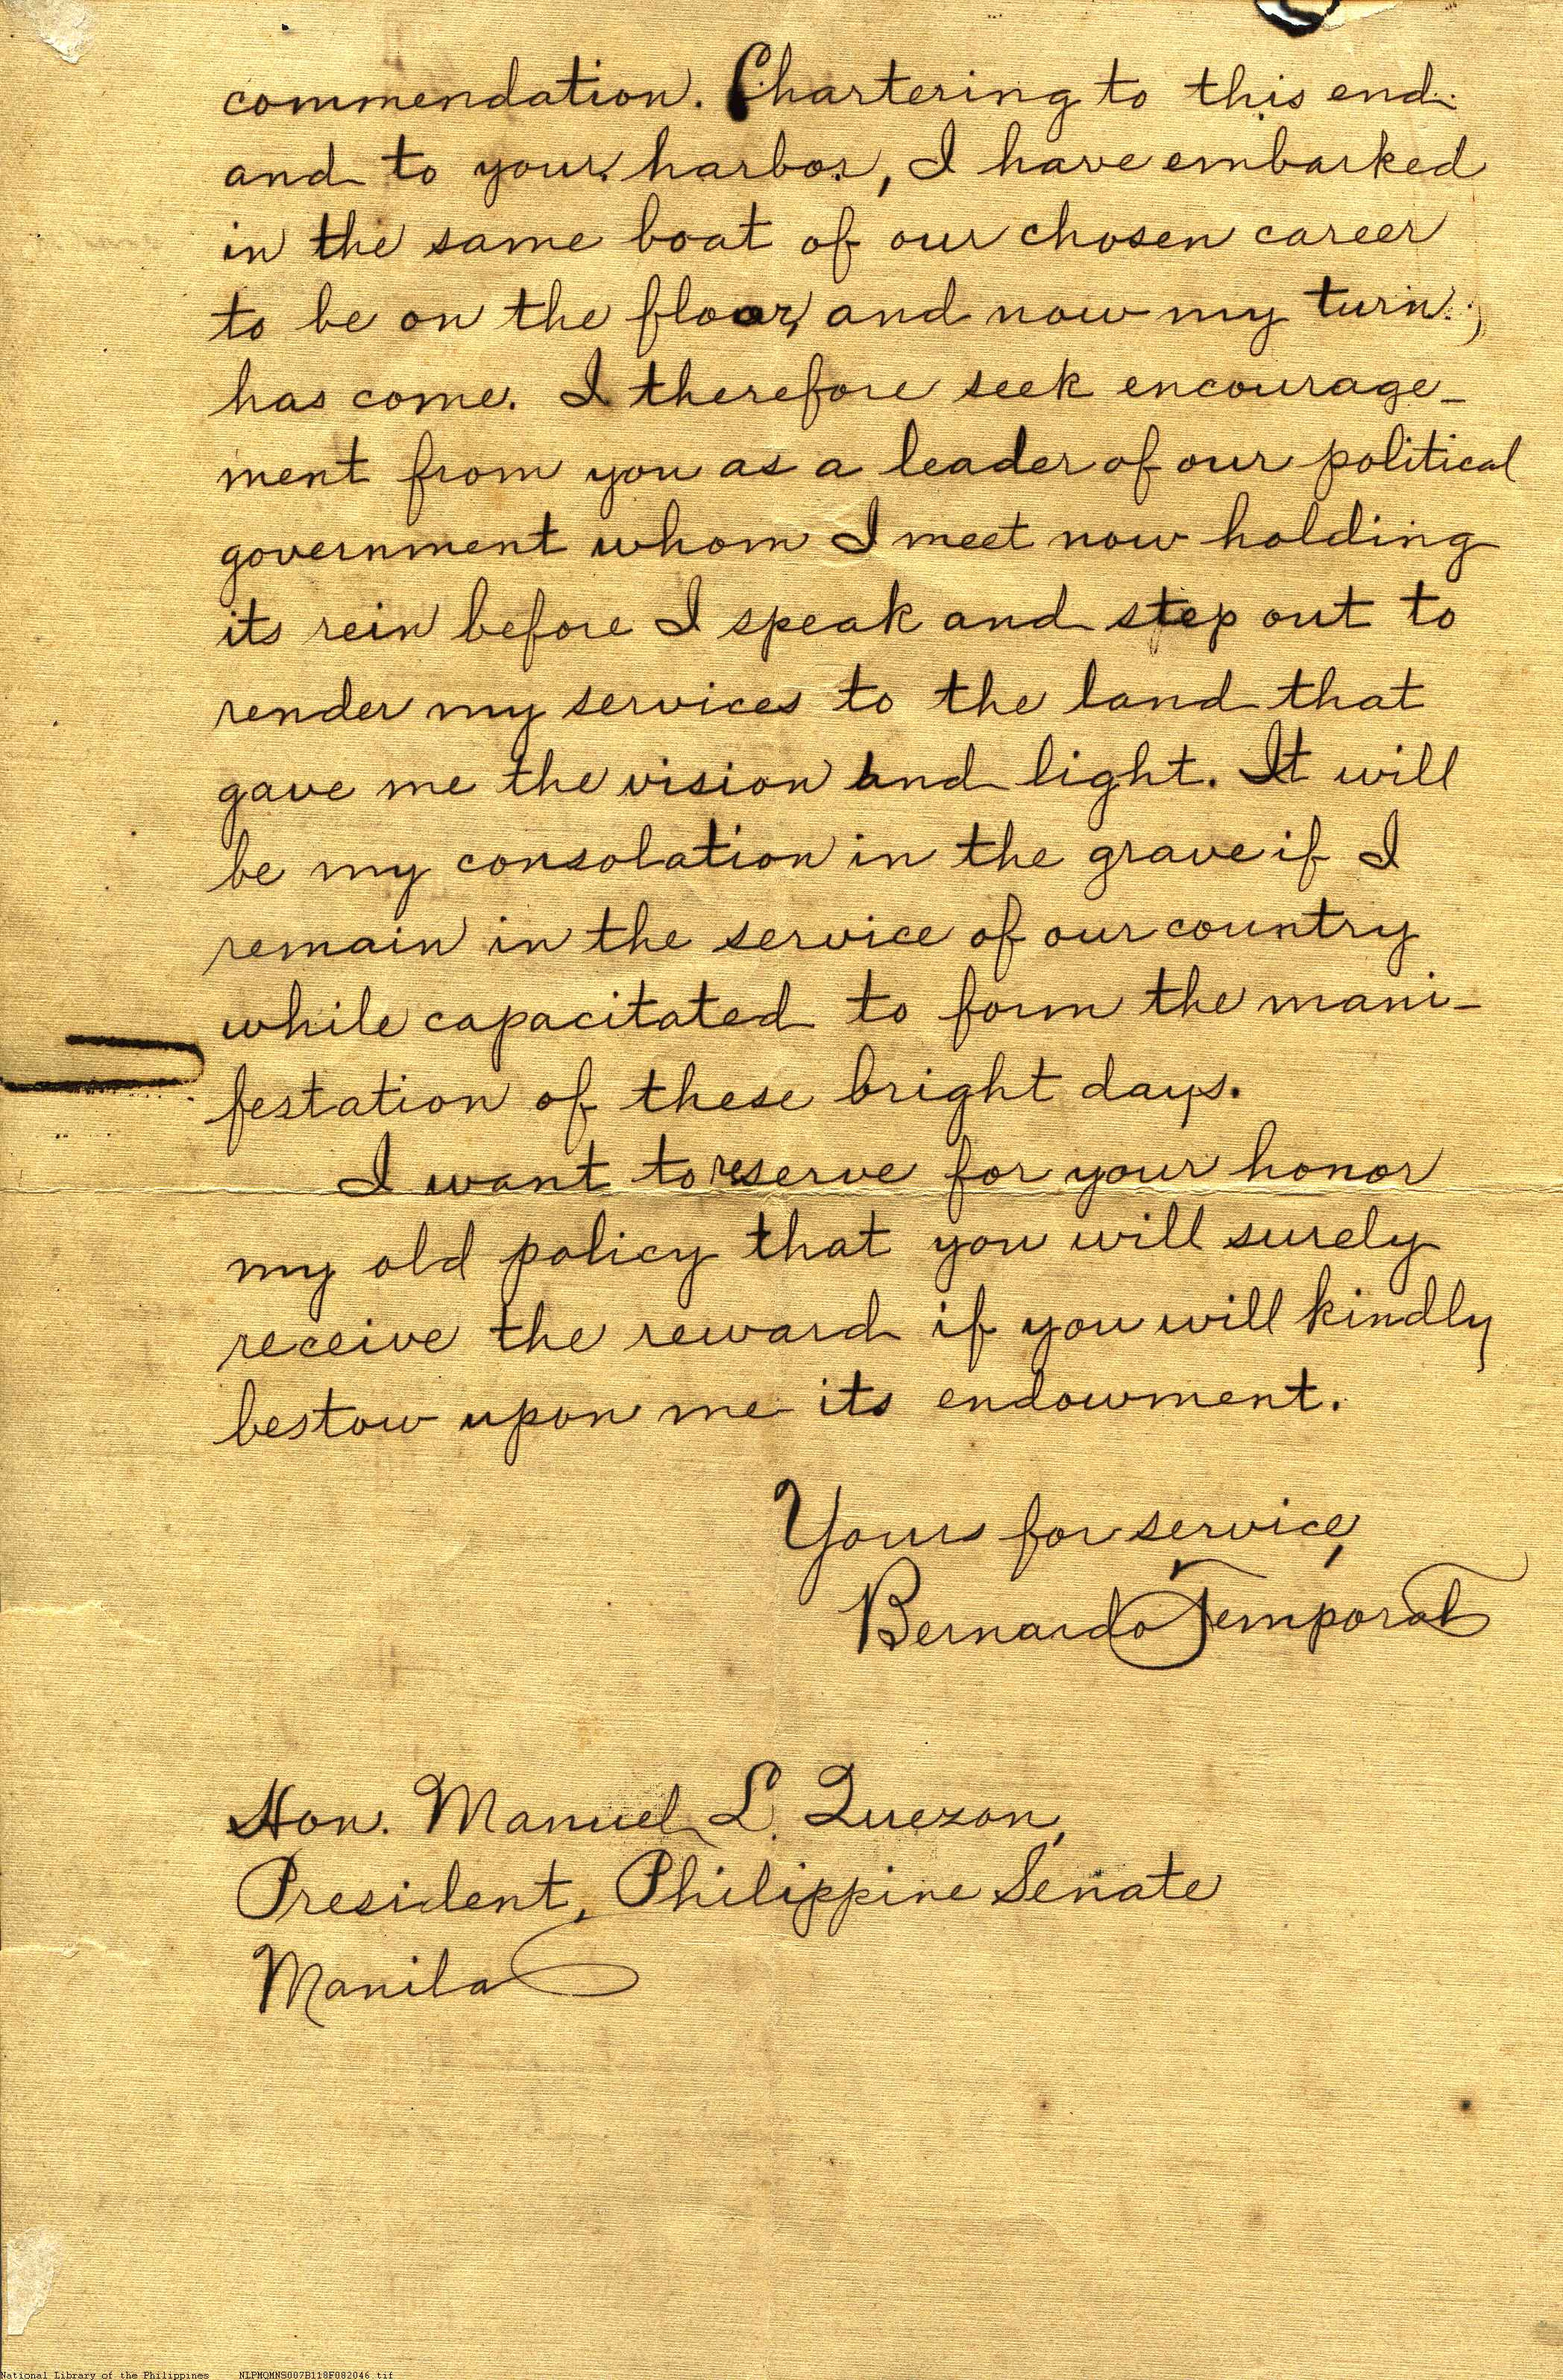 commendation. Chartering to this end
and to your harbor, I have embarked
in the same boat of our chosen career
to be on the floor, and now my turn
has come. I therefore seek encourage-
ment from you as a leader of our political
government whom I meet now holding
its rein before I speak and step out to
render my services to the land that
gave me the vision and light. It will
be my consolation in the grave if I
remain in the service of our country
while capacitated to form the mani-
festation of these bright days.
I want to reserve for your honor
my old policy that you will surely
receive the reward if you will kindly
bestow upon me its endowment.
Yours for service,
Bernardo Temporal
Hon. Manuel L. Quezon,
President, Philippine Senate
Manila
National Library of the Philippines NLPMQMNS007B118F082046.tif